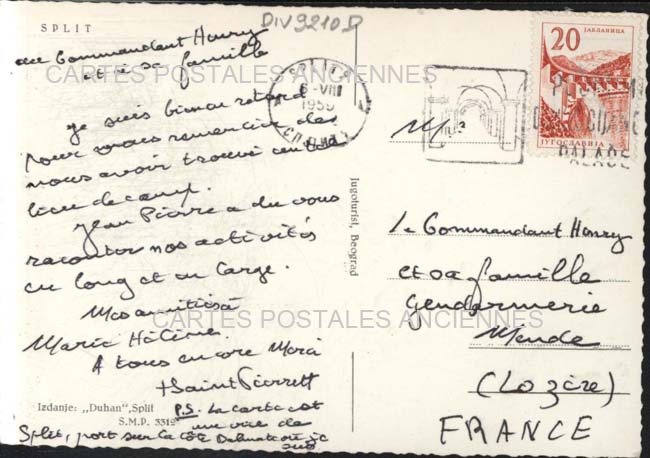 SPLIT
DIV9210D
au Commandant Henry
et à sa famille
CARTES POSTALES ANCIENNES
Je suis bien en retard
pour vous remercier de
nous avoir trouvé un tel
lieu de camp.
Jean Pierre a du vous
raconter nos activités
en long et en large.
Mes amitiés à
Marie Hélène.
A tous encore Merci
HSaint Pierre
Izdanje: „Duhan", Split
S.M.P. 3312
P.S. La carte est
une vue de
Split, port sur la côte Dalmate
Jugoturist, Beograd
6-VIII
1959
20
ЈАБЛАНИЦА
ЈУГОСЛАВИЈА
PALACE
le Commandant Henry
et sa famille
Gendarmerie
CARTES POSTALES ANCIENNES
Mende
(Lozère)
FRANCE